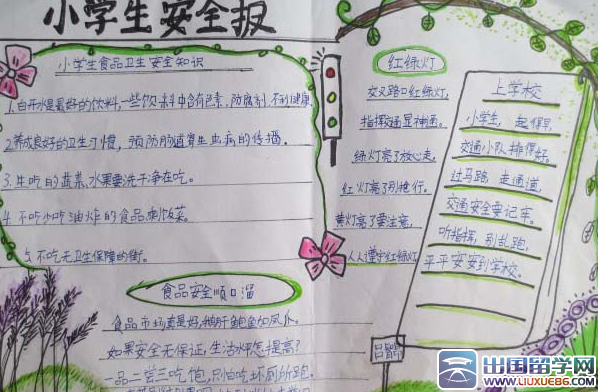 小学生安全报
小学生食品卫生安全知识
1.白开水是最好的饮料,一些饮料中含有色素,防腐剂,不利健康
2.养成良好的卫生习惯,预防肠道寄生虫病的传播.
3.生吃的蔬菜,水果要洗干净在吃。
4.不吃 油炸的食品剩饭菜。
5.不吃无卫生保障的街。
食品安全顺口溜
食品市场真是好,鹅肝鲍鱼加凤爪。
如果安全无保证,生活水平怎提高?
一品二尝三吃饱,只怕吃坏厕所跑。
红绿灯
交叉路口红绿灯,
指挥交通显神通。
绿灯亮了放心走,
红灯亮了别抢行。
黄灯亮了要注意,
人人遵守红绿灯
上学校
小学生,起得早,
交通小队排得好。
过马路,走通道,
交通安全要记牢。
听指挥,别乱跑,
平平安安到学校。
出国留学网
www.liuxue86.com